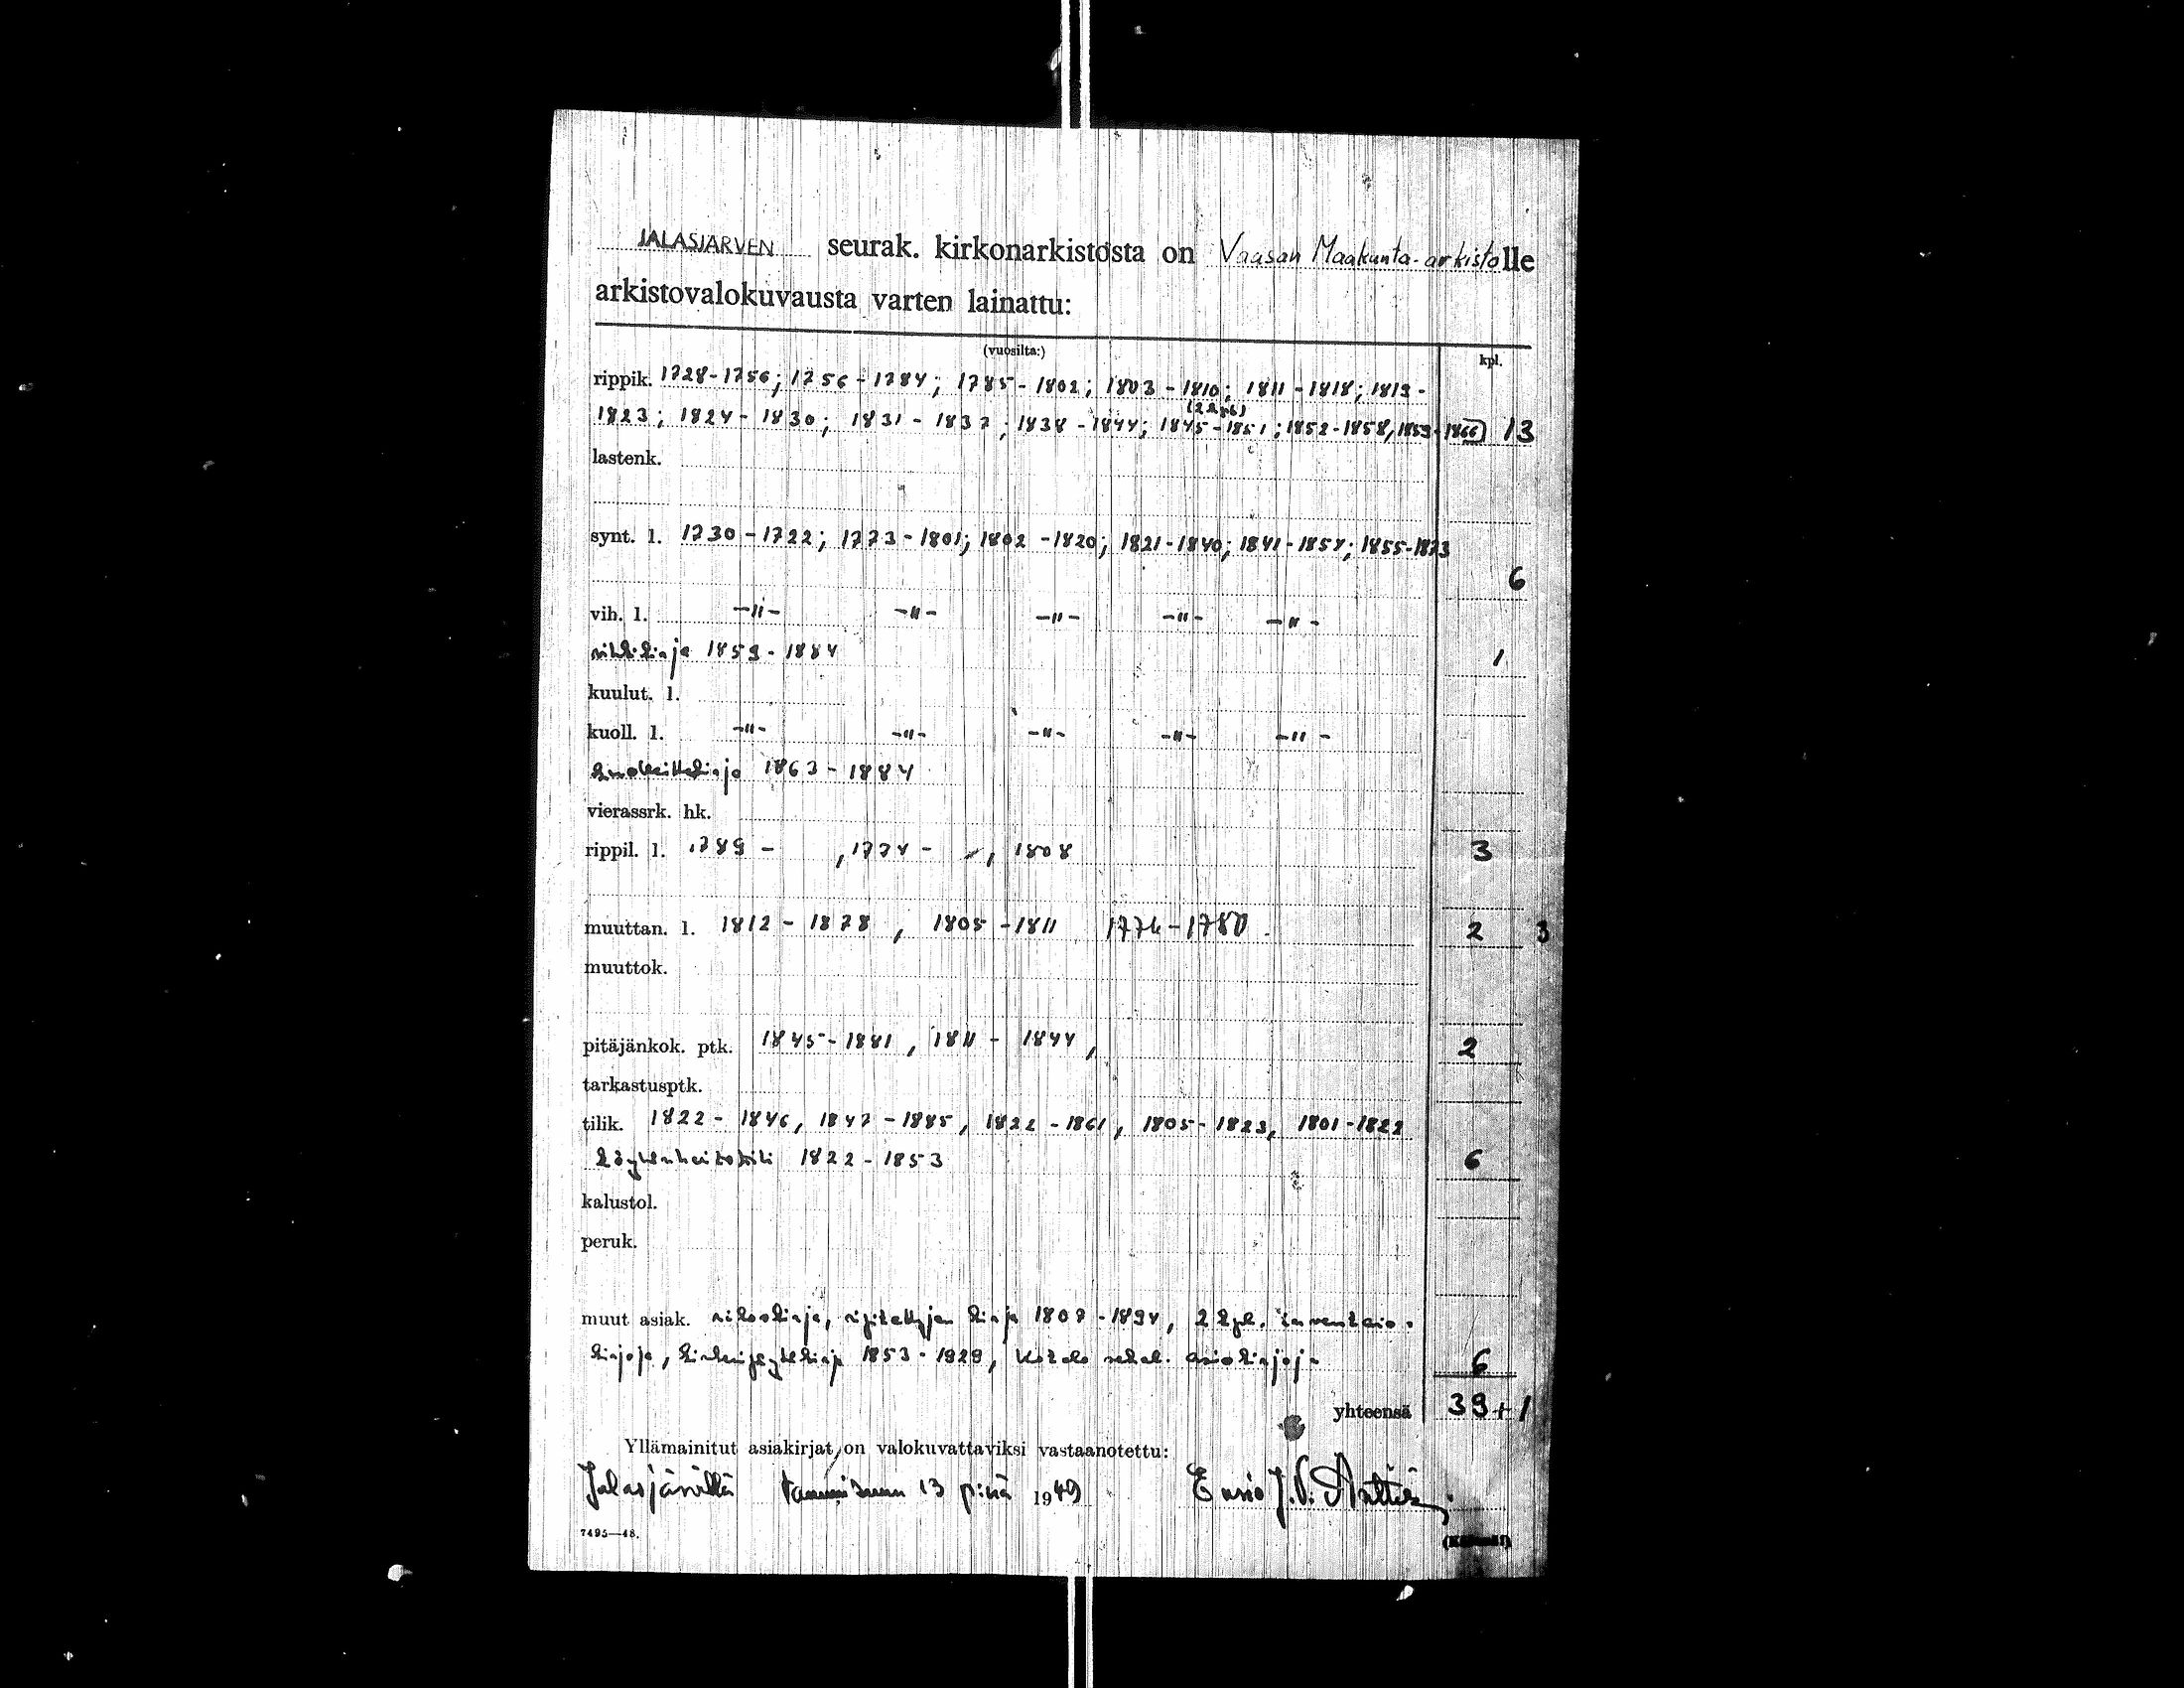 JALASJÄRVEN seurak. kirkonarkistosta on Vaasan Maakunta-arkistolle
arkistovalokuvausta varten lainattu:
(vuosilta:) kpl.
rippik. 1728-1756; 1756-1784; 1785-1802; 1803-1810; 1811-1818; 1819-
(2 kpl)
1823; 1824-1830; 1831-1837; 1838-1844; 1845-1851; 1852-1858, 1859-1866 13
lastenk.
synt. l. 1730-1722; 1773-1801; 1802-1820; 1821-1840; 1841-1854; 1855-1873
6
vih. l. -"- -"- -"- -"- -"-
vihkikirja 1859-1884 1
kuulut. l.
kuoll. l. -"- -"- -"- -"- -"-
1863-1884
vierassrk. hk.
rippil. l. 1789 - , 1774 - , 1808 3
muuttan. l. 1812-1878, 1805-1811 1774-1780. 2 3
muuttok.
pitäjänkok. ptk. 1845-1881, 1811-1844, 2
tarkastusptk.
tilik. 1822-1846, 1847-1885, 1822-1861, 1805-1823, 1801-1822
köyhänhoitotili 1822-1853 6
kalustol.
peruk.
muut asiak. rikoskirja, ripitettyjen kirja 1807-1894, 2 kpl. inventaio-
kirjoja, 1853-1929, Kotelo sekal. asiakirjoja 6
yhteensä 39+1
Yllämainitut asiakirjat on valokuvattaviksi vastaanotettu:
Jalasjärvellä tammikuun 13 p:nä 1949 Ensio J.V. Anttila
7495—48.